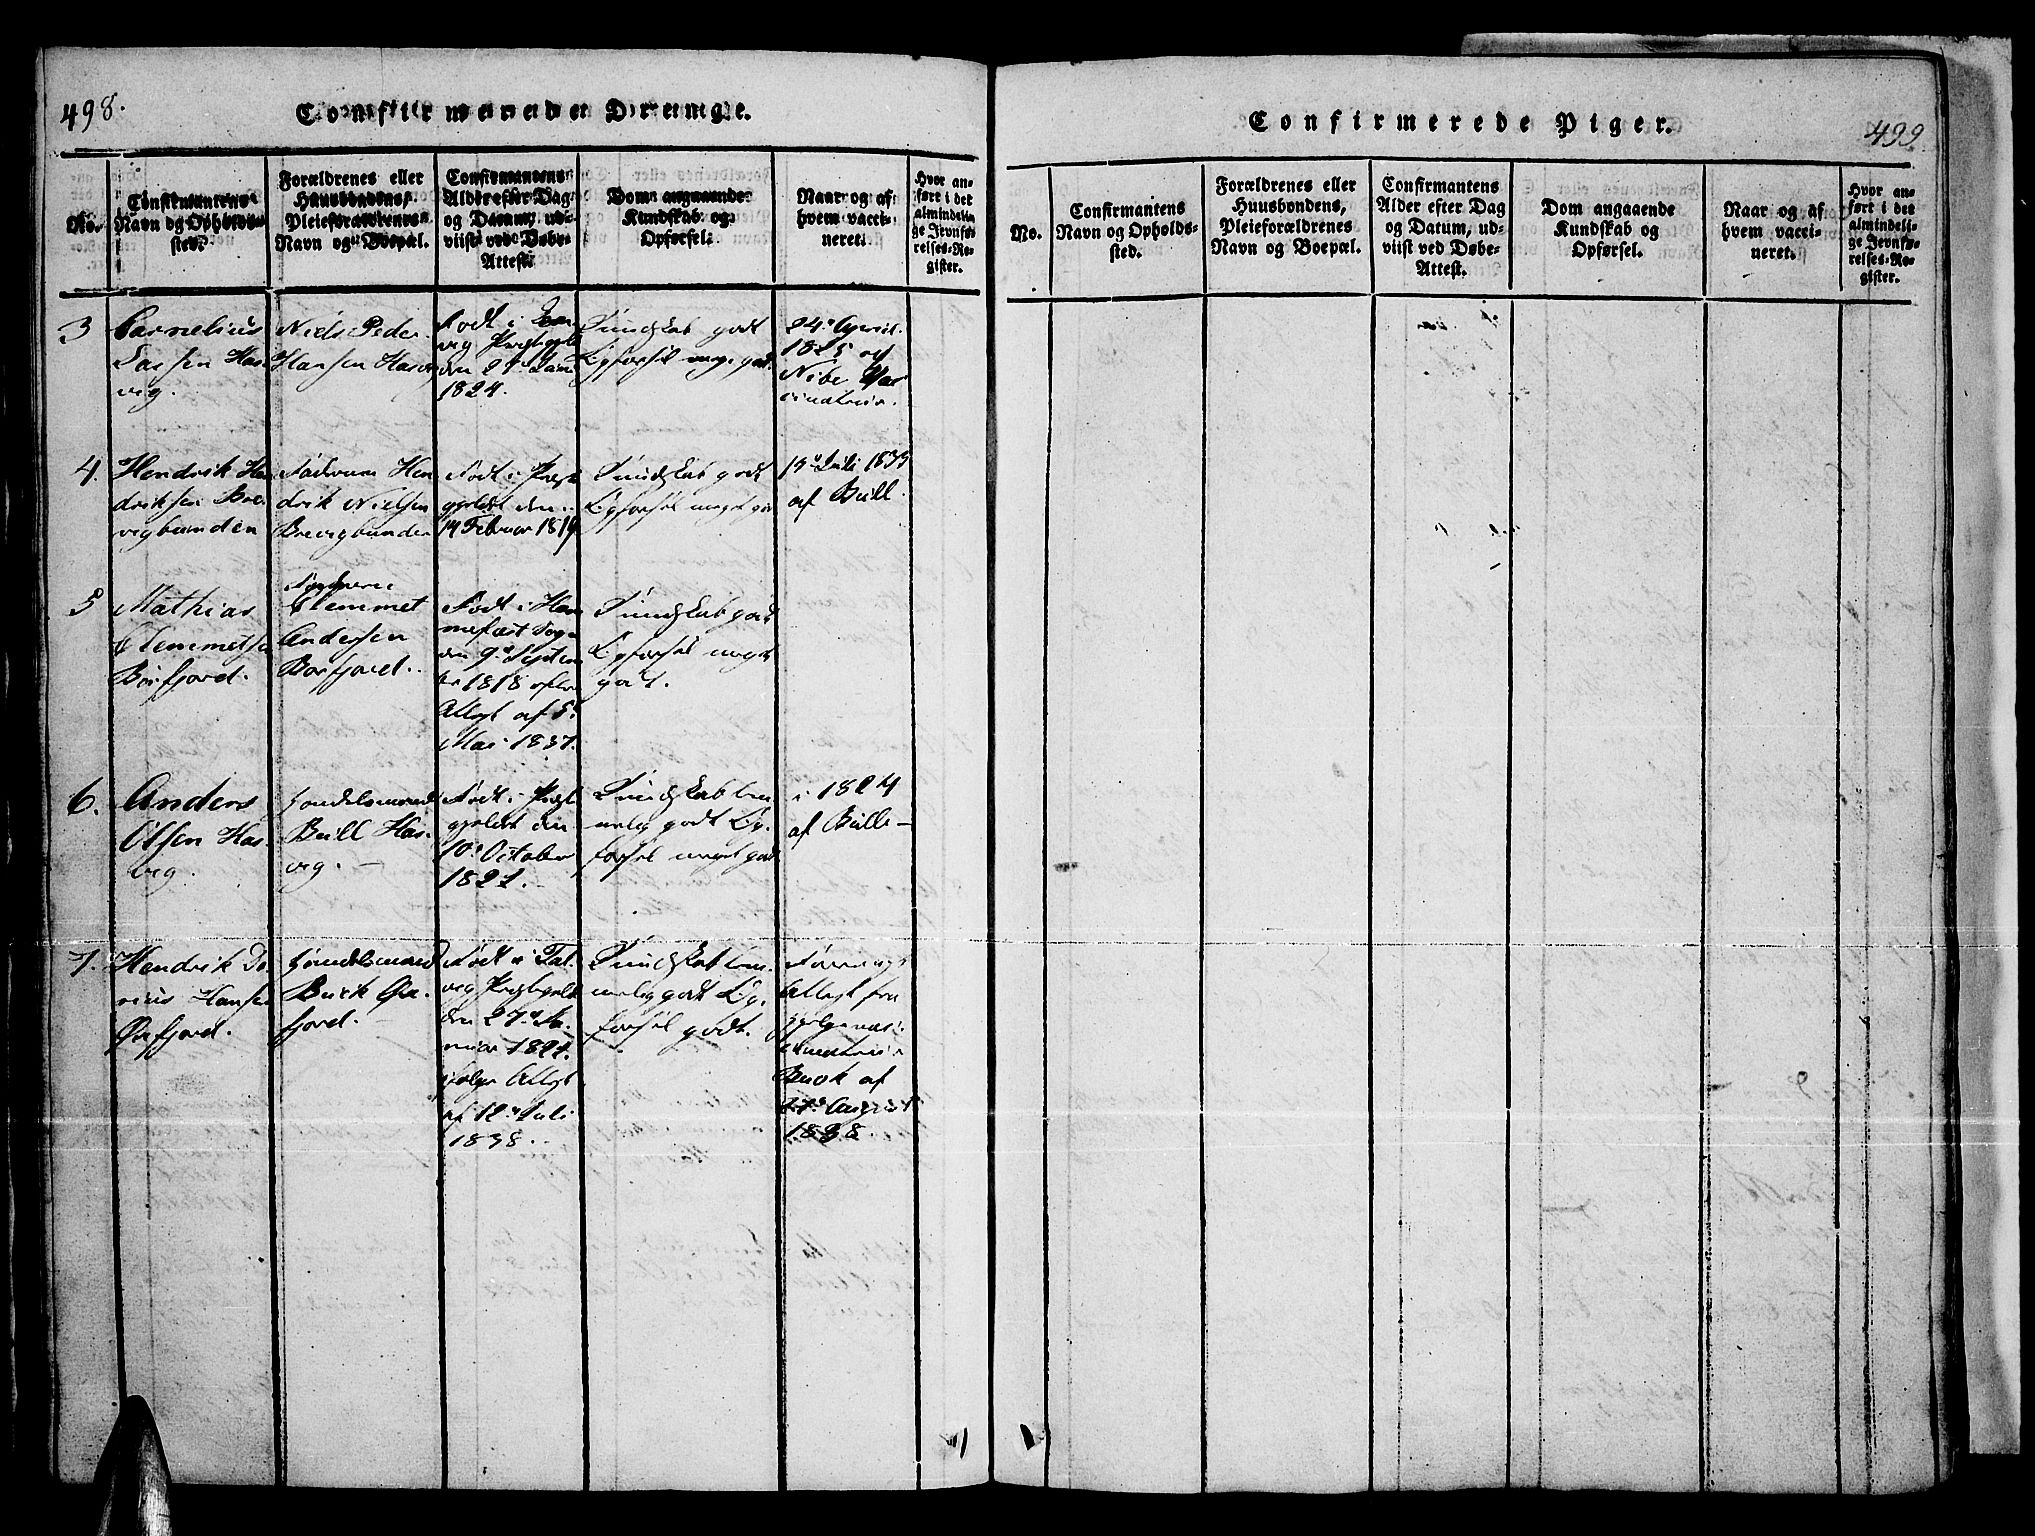 498.
Confirmerede Drenge.
No.
Confirmantens
Navn og Opholds-
sted.
Forældrenes eller
Huusbondens,
Pleieforældrenes
Navn og Boepæl.
Confirmantens
Alder efter Dag
og Datum, ud-
viist ved Døbe-
Attest.
Dom angaaende
Kundskab og
Opførsel.
Naar og af
hvem vacci-
neret.
Hvor an-
ført i det
almindeli-
ge Jevnfø-
relses-Re-
gister.
3
Cornelius
Has-
vig.
Niels Peder
Hansen Hasvig
Født i
vig Præstegjeld
den
1824.
Kundskab godt
Opførsel meget godt.
24de April
1825 af
Nibe
4.
Hendrik Hen-
driksen Bre-
vigbunden
Faderen Hen-
drik Nielsen
Brevigbunden
Født i Præste-
gjeldet den
14 Februar 1819
Kundskab godt
Opførsel meget godt
15de Juli 1833
af Bull.
5
Mathias
Klemmetsen
Børfjord.
Faderen
Klemmet
Andersen
Børfjord.
Født i Ham-
merfæst Sogn
den 9de Septem-
ber 1818 efter
Attest af 5te
Mai 1837.
Kundskab godt
Opførsel meget
godt.
6.
Anders
Olsen Has-
vig.
Handelsmand
Bull Has-
vig.
Født i Præste-
gjeldet den
10de October
1821.
Kundskab tem-
melig godt Op-
førsel meget godt
i 1824
af Bull
7.
Hendrik Do-
rius Hansen
Øxfjord.
Handelsmand
Buck Øx-
fjord.
Født i Tal-
vig Præstegjeld
den 27de Ja-
nuar 1821.
ifølge Attest
af 12te Juli
1838.
Kundskab tem-
melig godt Op-
førsel godt.
Attest fra
Buck af
August
1828.
Confirmerede Piger.
499
No.
Confirmantens
Navn og Opholds-
sted.
Forældrenes eller
Huusbondens,
Pleieforældrenes
Navn og Boepæl.
Confirmantens
Alder efter Dag
og Datum, ud-
viist ved Døbe-
Attest.
Dom angaaende
Kundskab og
Opførsel.
Naar og af
hvem vacci-
neret.
Hvor an-
ført i det
almindeli-
ge Jevnfø-
relses-Re-
gister.